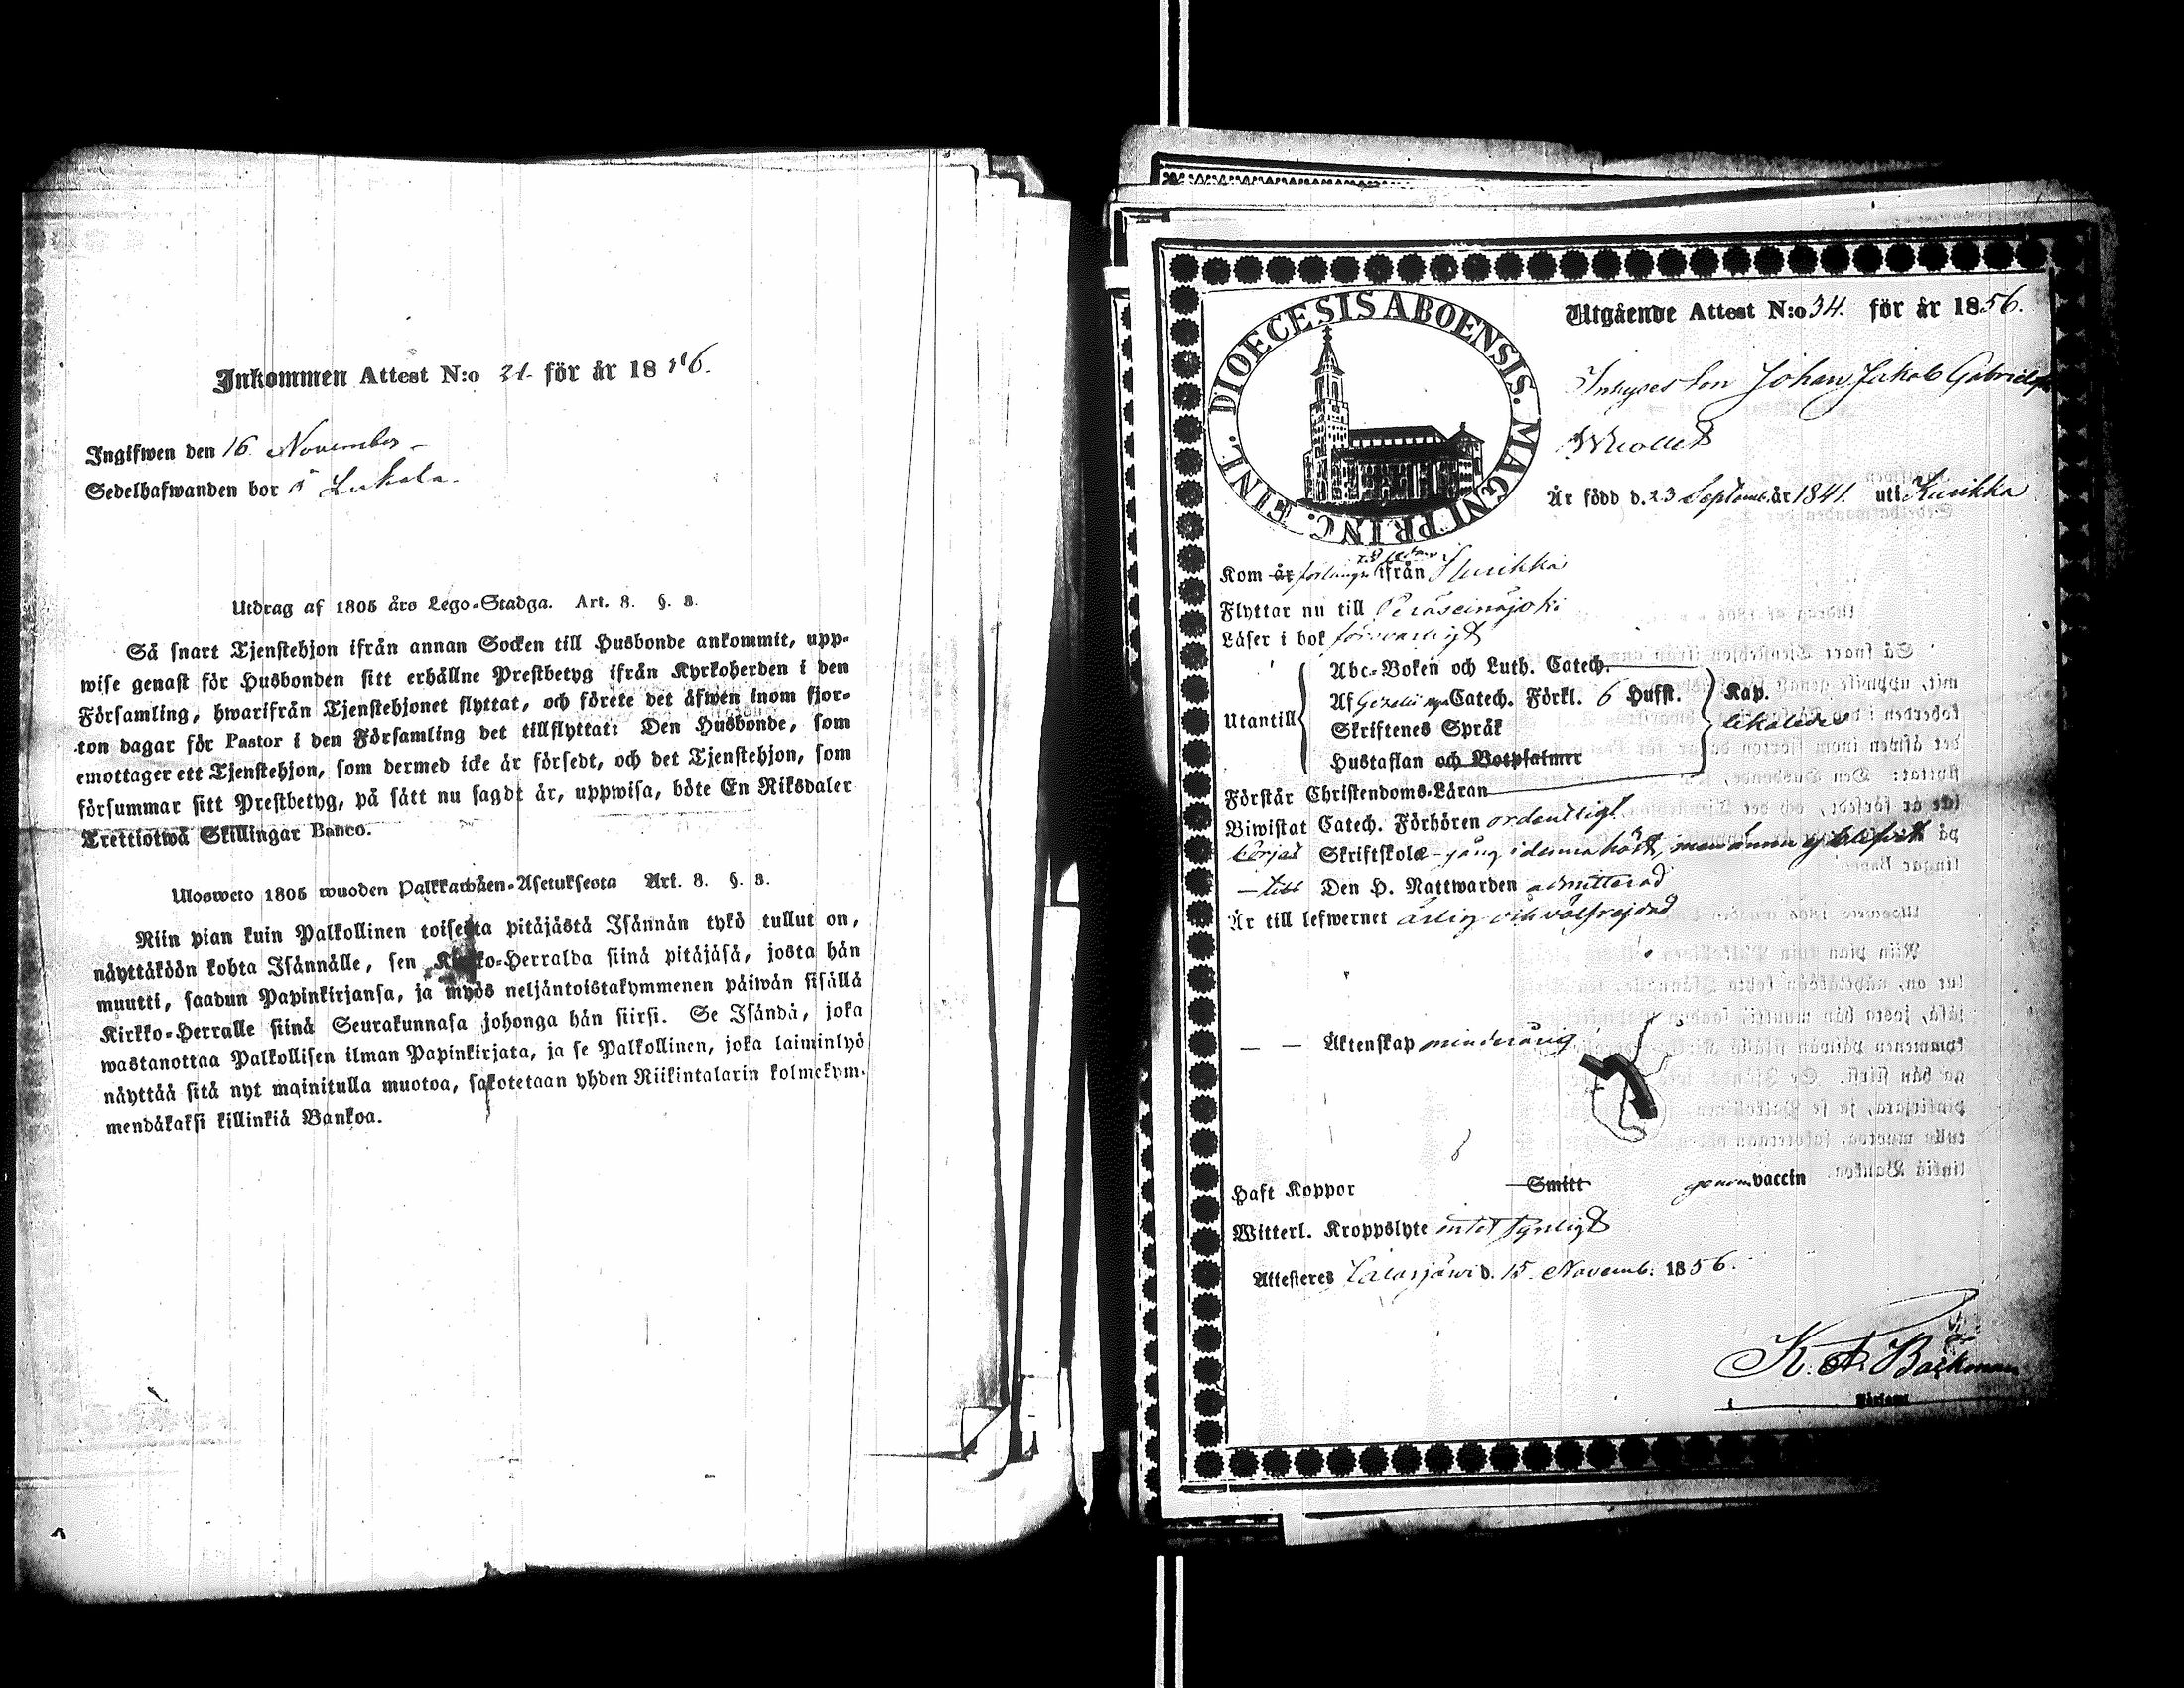 Inkommen Attest N:o 31. för år 1856.
Ingifwen den 16 November
Sedelhafwanden bor å Luhola.
Utdrag af 1805 års Lego-Stadga. Art. 8. §. 3.
Så snart Tjenstehjon ifrån annan Socken till Husbonde ankommit, upp-
wise genast för Husbonden sitt erhållne Prestbetyg ifrån Kyrkoherden i den
Församling, hwarifrån Tjenstehjonet flyttat, och förete det äfwen inom fjor-
ton dagar för Pastor i den Församling det tillflyttat: Den Husbonde, som
emottager ett Tjenstehjon, som dermed icke är försedt, och det Tjenstehjon, som
försummar sitt Prestbetyg, på sätt nu sagdt är, uppwisa, böte En Riksdaler
Trettiotwå Skillingar Banco.
Ulosweto 1805 wuoden Palkkawäen-Asetuksesta Art. 8. §. 3.
Niin pian kuin Palkollinen toisesta pitäjästä Isännän tykö tullut on,
näyttäköön kohta Isännälle, sen Kirkko-Herralda siinä pitäjäsä, josta hän
muutti, saadun Papinkirjansa, ja myös neljäntoistakymmenen päiwän sisällä
Kirkko-Herralle siinä Seurakunnasa johonga hän siirsi. Se Isändä, joka
wastanottaa Palkollisen ilman Papinkirjata, ja se Palkollinen, joka laiminlyö
näyttää sitä nyt mainitulla muotoa, sakotetaan yhden Riikintalarin kolmekym-
mendäkaksi killinkiä Bankoa.
DIOECESIS ABOENSIS. MAGNI PRINC. FINL.
Utgående Attest N:o 34. för år 1856.
Inhyses son Johan Jakob Gabrielss
Är född d. 23 Septemb. år 1841. uti Kurikka
Kom år ifrån Kurikka
Flyttar nu till Peräseinäjoki
Läser i bok försvarligt
Abc-Boken och Luth. Catech.
Utantill Af Gezelii Catech. Förkl. 6 Hufst. Kap.
Skriftenes Språk
Hustaflan och Botpsalmer
Förstår Christendoms-Läran
Biwistat Catech. Förhören ordentligt
börjat Skriftskole-gång i denna höst, men ännu ej blifvit
till Den H. Nattwarden admitterad
Är till lefwernet ärlig och välfrejdad
Äktenskap minderårig
Haft Koppor Smitt genom vaccin
Witterl. Kroppslyte intet synligt
Attesteres Jalasjärvi d. 15 Novemb. 1856.
K. A. Bäckman